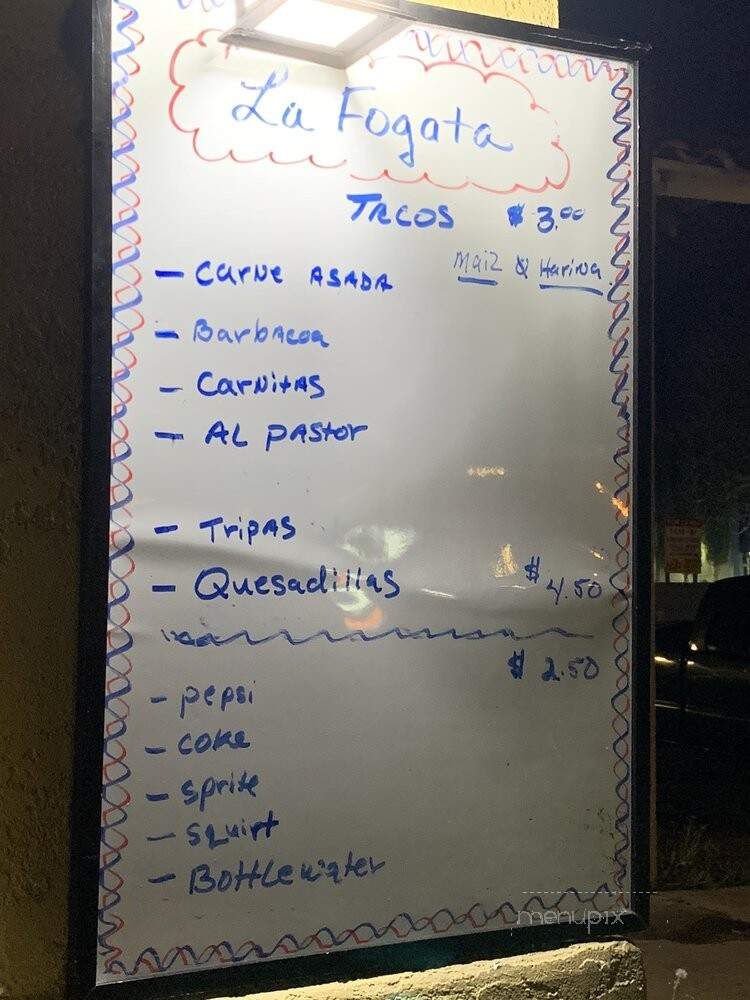 La Fogata
TACOS $3.00
- Carne ASADA Maiz & Harina
- Barbacoa
- Carnitas
- AL pastor
- Tripas
- Quesadillas $4.50
$2.50
- pepsi
- coke
- sprite
- squirt
- Bottlewater
menupix